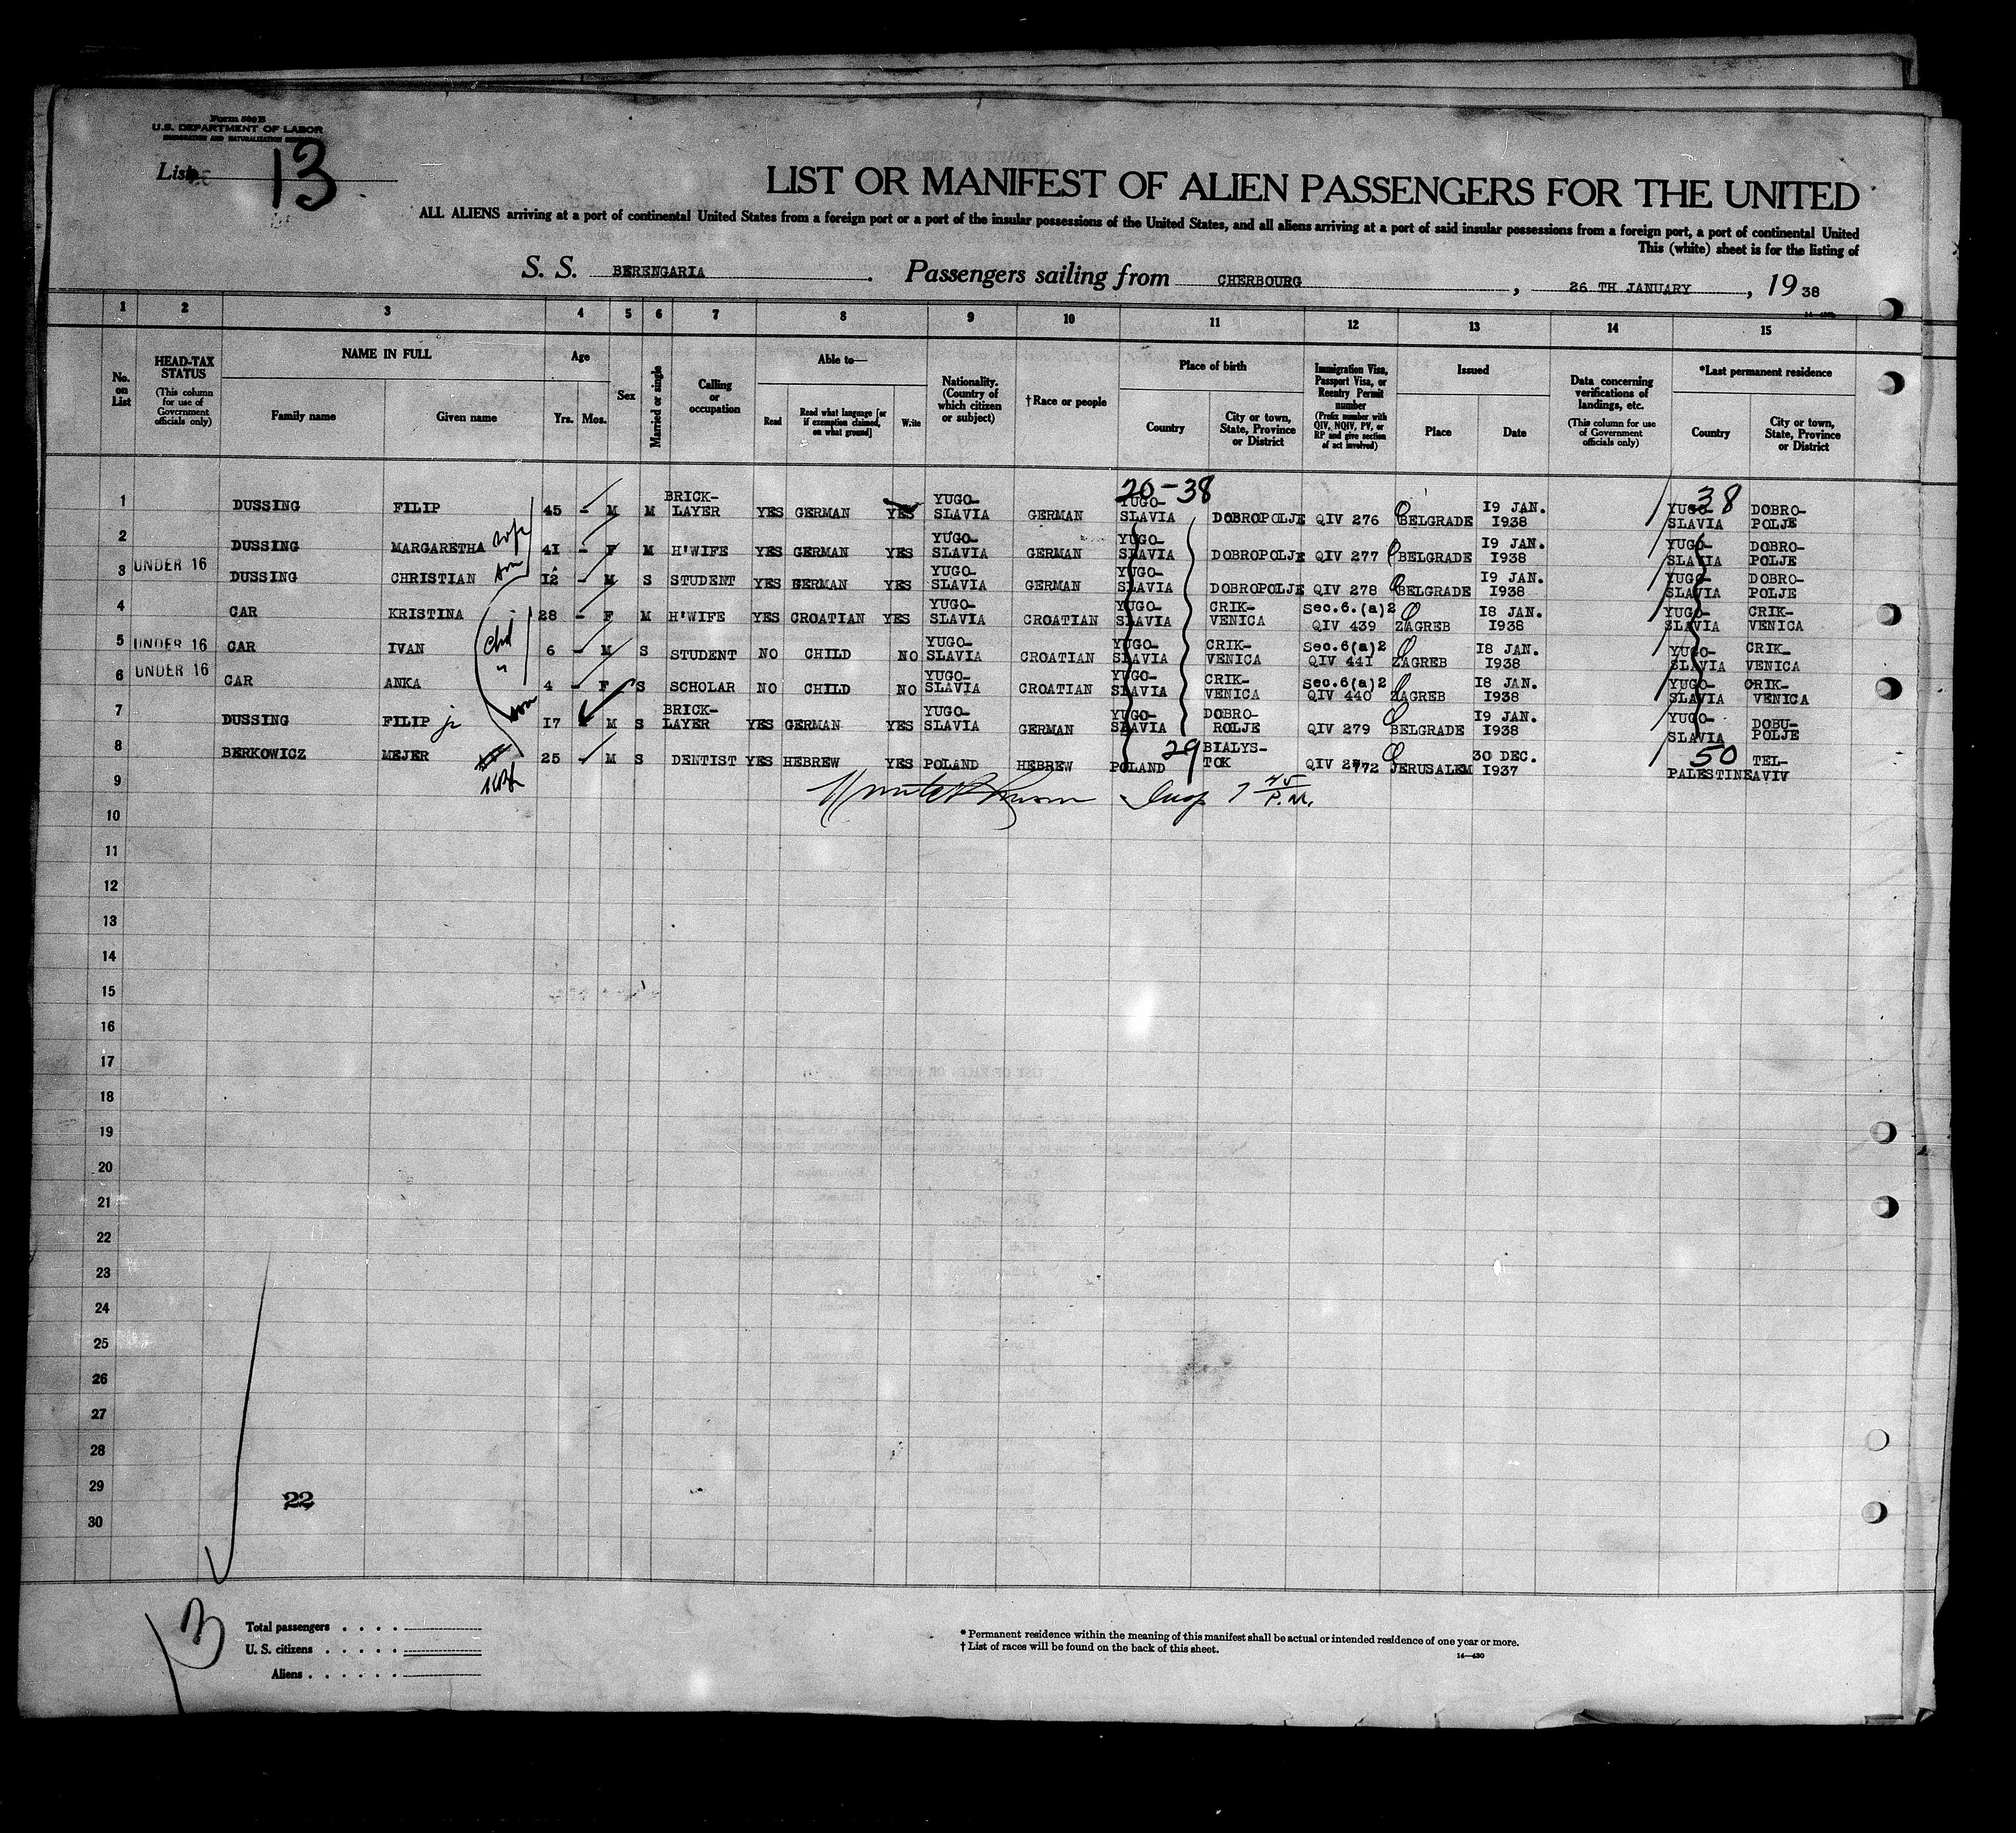 Form 500 B
U.S. DEPARTMENT OF LABOR
IMMIGRATION AND NATURALIZATION
List 13
LIST OR MANIFEST OF ALIEN PASSENGERS FOR THE UNITED
ALL ALIENS arriving at a port of continental United States from a foreign port or a port of the insular possessions of the United States, and all aliens arriving at a port of said insular possessions from a foreign port, a port of continental United
This (white) sheet is for the listing of
S. S. BERENGARIA. Passengers sailing from CHERBOURG, 26 TH JANUARY, 19 38
1 2 3 4 5 6 7 8 9 10 11 12 13 14 15
No. on List
HEAD-TAX STATUS (This column for use of Government officials only)
NAME IN FULL Family name Given name
Age Yrs. Mos.
Sex
Married or single
Calling or occupation
Able to— Read Read what language [or if exemption claimed, on what ground] Write
Nationality. (Country of which citizen or subject)
†Race or people
Place of birth Country City or town, State, Province or District
Immigration Visa, Passport Visa, or Reentry Permit number (Prefix number with QIV, NQIV, PV, or RP and give section of act involved)
Issued Place Date
Data concerning verifications of landings, etc. (This column for use of Government officials only)
*Last permanent residence Country City or town, State, Province or District
20-38 38
1 DUSSING FILIP 45 - M M BRICK-LAYER YES GERMAN YES YUGO-SLAVIA GERMAN YUGO-SLAVIA DOBROPOLJE QIV 276 BELGRADE 19 JAN. 1938 YUGO-SLAVIA DOBRO-POLJE
2 DUSSING MARGARETHA wife 41 - F M H'WIFE YES GERMAN YES YUGO-SLAVIA GERMAN YUGO-SLAVIA DOBROPOLJE QIV 277 BELGRADE 19 JAN. 1938 YUGO-SLAVIA DOBRO-POLJE
3 UNDER 16 DUSSING CHRISTIAN son 12 - M S STUDENT YES GERMAN YES YUGO-SLAVIA GERMAN YUGO-SLAVIA DOBROPOLJE QIV 278 BELGRADE 19 JAN. 1938 YUGO-SLAVIA DOBRO-POLJE
4 CAR KRISTINA 28 - F M H'WIFE YES CROATIAN YES YUGO-SLAVIA CROATIAN YUGO-SLAVIA CRIK-VENICA Sec.6.(a)2 QIV 439 ZAGREB 18 JAN. 1938 YUGO-SLAVIA CRIK-VENICA
5 UNDER 16 CAR IVAN chd 6 - M S STUDENT NO CHILD NO YUGO-SLAVIA CROATIAN YUGO-SLAVIA CRIK-VENICA Sec.6(a)2 QIV 441 ZAGREB 18 JAN. 1938 YUGO-SLAVIA CRIK-VENICA
6 UNDER 16 CAR ANKA " 4 - F S SCHOLAR NO CHILD NO YUGO-SLAVIA CROATIAN YUGO-SLAVIA CRIK-VENICA Sec.6(a)2 QIV 440 ZAGREB 18 JAN. 1938 YUGO-SLAVIA CRIK-VENICA
7 DUSSING FILIP jr son 17 M S BRICK-LAYER YES GERMAN YES YUGO-SLAVIA GERMAN YUGO-SLAVIA DOBRO-ROLJE QIV 279 BELGRADE 19 JAN. 1938 YUGO-SLAVIA DOBU-POLJE
8 BERKOWICZ MEJER 25 - M S DENTIST YES HEBREW YES POLAND HEBREW POLAND 29 BIALYS-TOK QIV 2772 JERUSALEM 30 DEC. 1937 50 PALESTINE TEL-AVIV
9 Insp 7 45 P.M.
10
11
12
13
14
15
16
17
18
19
20
21
22
23
24
25
26
27
28
29 22
30
13
Total passengers . . . .
U. S. citizens . . . . .
Aliens . . . . . .
* Permanent residence within the meaning of this manifest shall be actual or intended residence of one year or more.
† List of races will be found on the back of this sheet.
14—430